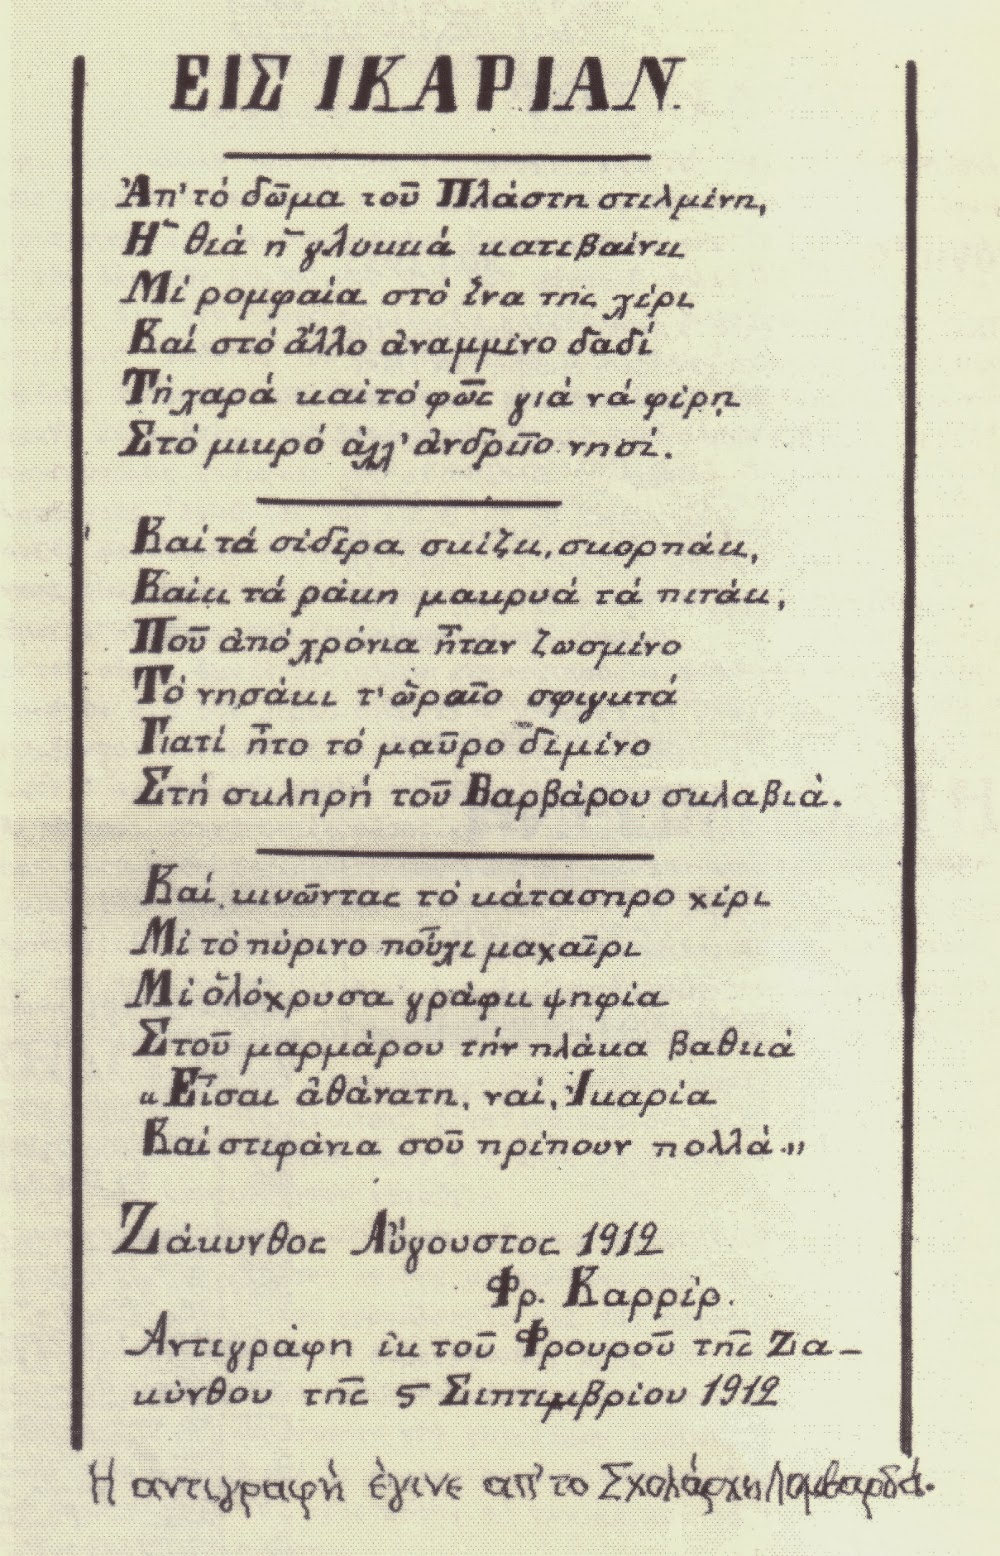 ΕΙΣ ΙΚΑΡΙΑΝ.
Ἀπ' τό δῶμα τοῦ Πλάστη στελμένη,
Ἡ θεά ἡ γλυκειά κατεβαίνει
Μέ ρομφαία στό ἕνα της χέρι
Καί στό ἄλλο ἀναμμένο δαδί
Τή χαρά καί τό φῶς γιά νά φέρῃ
Στό μικρό ἀλλ' ἀνδρεῖο νησί.
Καί τά σίδερα σκίζει, σκορπάει,
Καίει τά ράκη μακρυά τά πετάει,
Ποῦ ἀπό χρόνια ἦταν ζωσμένο
Τό νησάκι τ' ὡραῖο σφιγκτά
Γιατί ἦτο τό μαῦρο δεμένο
Στή σκληρή τοῦ Βαρβάρου σκλαβιά.
Καί κινῶντας τό κάτασπρο χέρι
Μέ τό πύρινο ποὖχε μαχαῖρι
Μέ ὁλόχρυσα γράφει ψηφία
Στοῦ μαρμάρου τήν πλάκα βαθειά
«Εἶσαι ἀθάνατη, ναί, Ἰκαρία
Καί στεφάνια σοῦ πρέπουν πολλά.»
Ζάκυνθος Αὔγουστος 1912
Φρ. Καρρέρ.
Αντιγράφη ἐκ τοῦ Φρουροῦ τῆς Ζα-
κύνθου τῆς 5 Σεπτεμβρίου 1912
Η αντιγραφή ἐγινε απ' το Σχολάρχη Λομβαρδά.